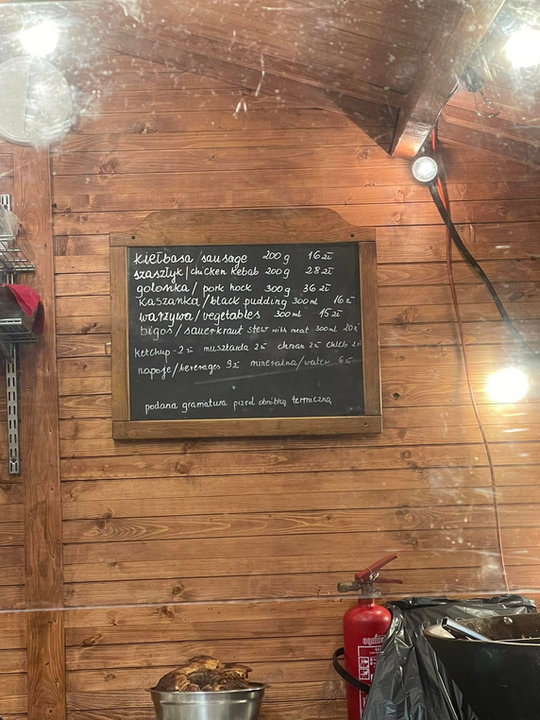 kiełbasa/sausage 200g 16 zł
szaszłyk/chicken kebab 200g 28 zł
golonka/pork hock 300g 36 zł
kaszanka/black pudding 300ml 16 zł
warzywa/vegetables 300ml 15 zł
bigos/sauerkraut stew with meat 300ml 20 zł
ketchup - 2 zł musztarda 2 zł chrzan 2 zł chleb 2 zł
napoje/beverages 9 zł mineralna/water 6 zł
podana gramatura przed obróbką termiczną